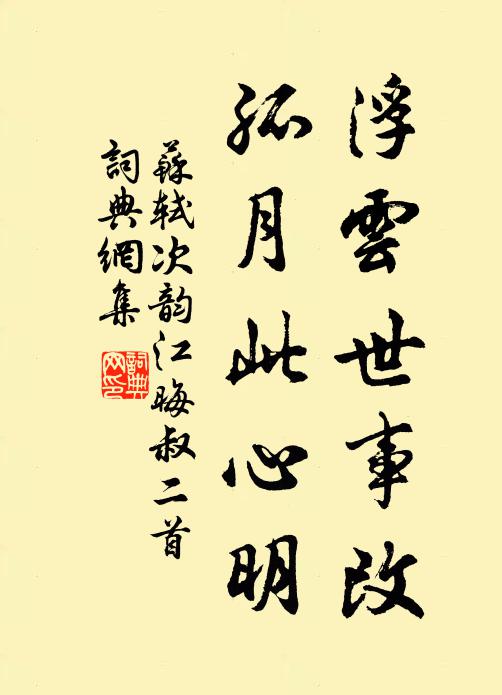 浮雲世事改
孤月此心明
蘇軾次韵江晦叔二首
詞典網集
詞典
网印